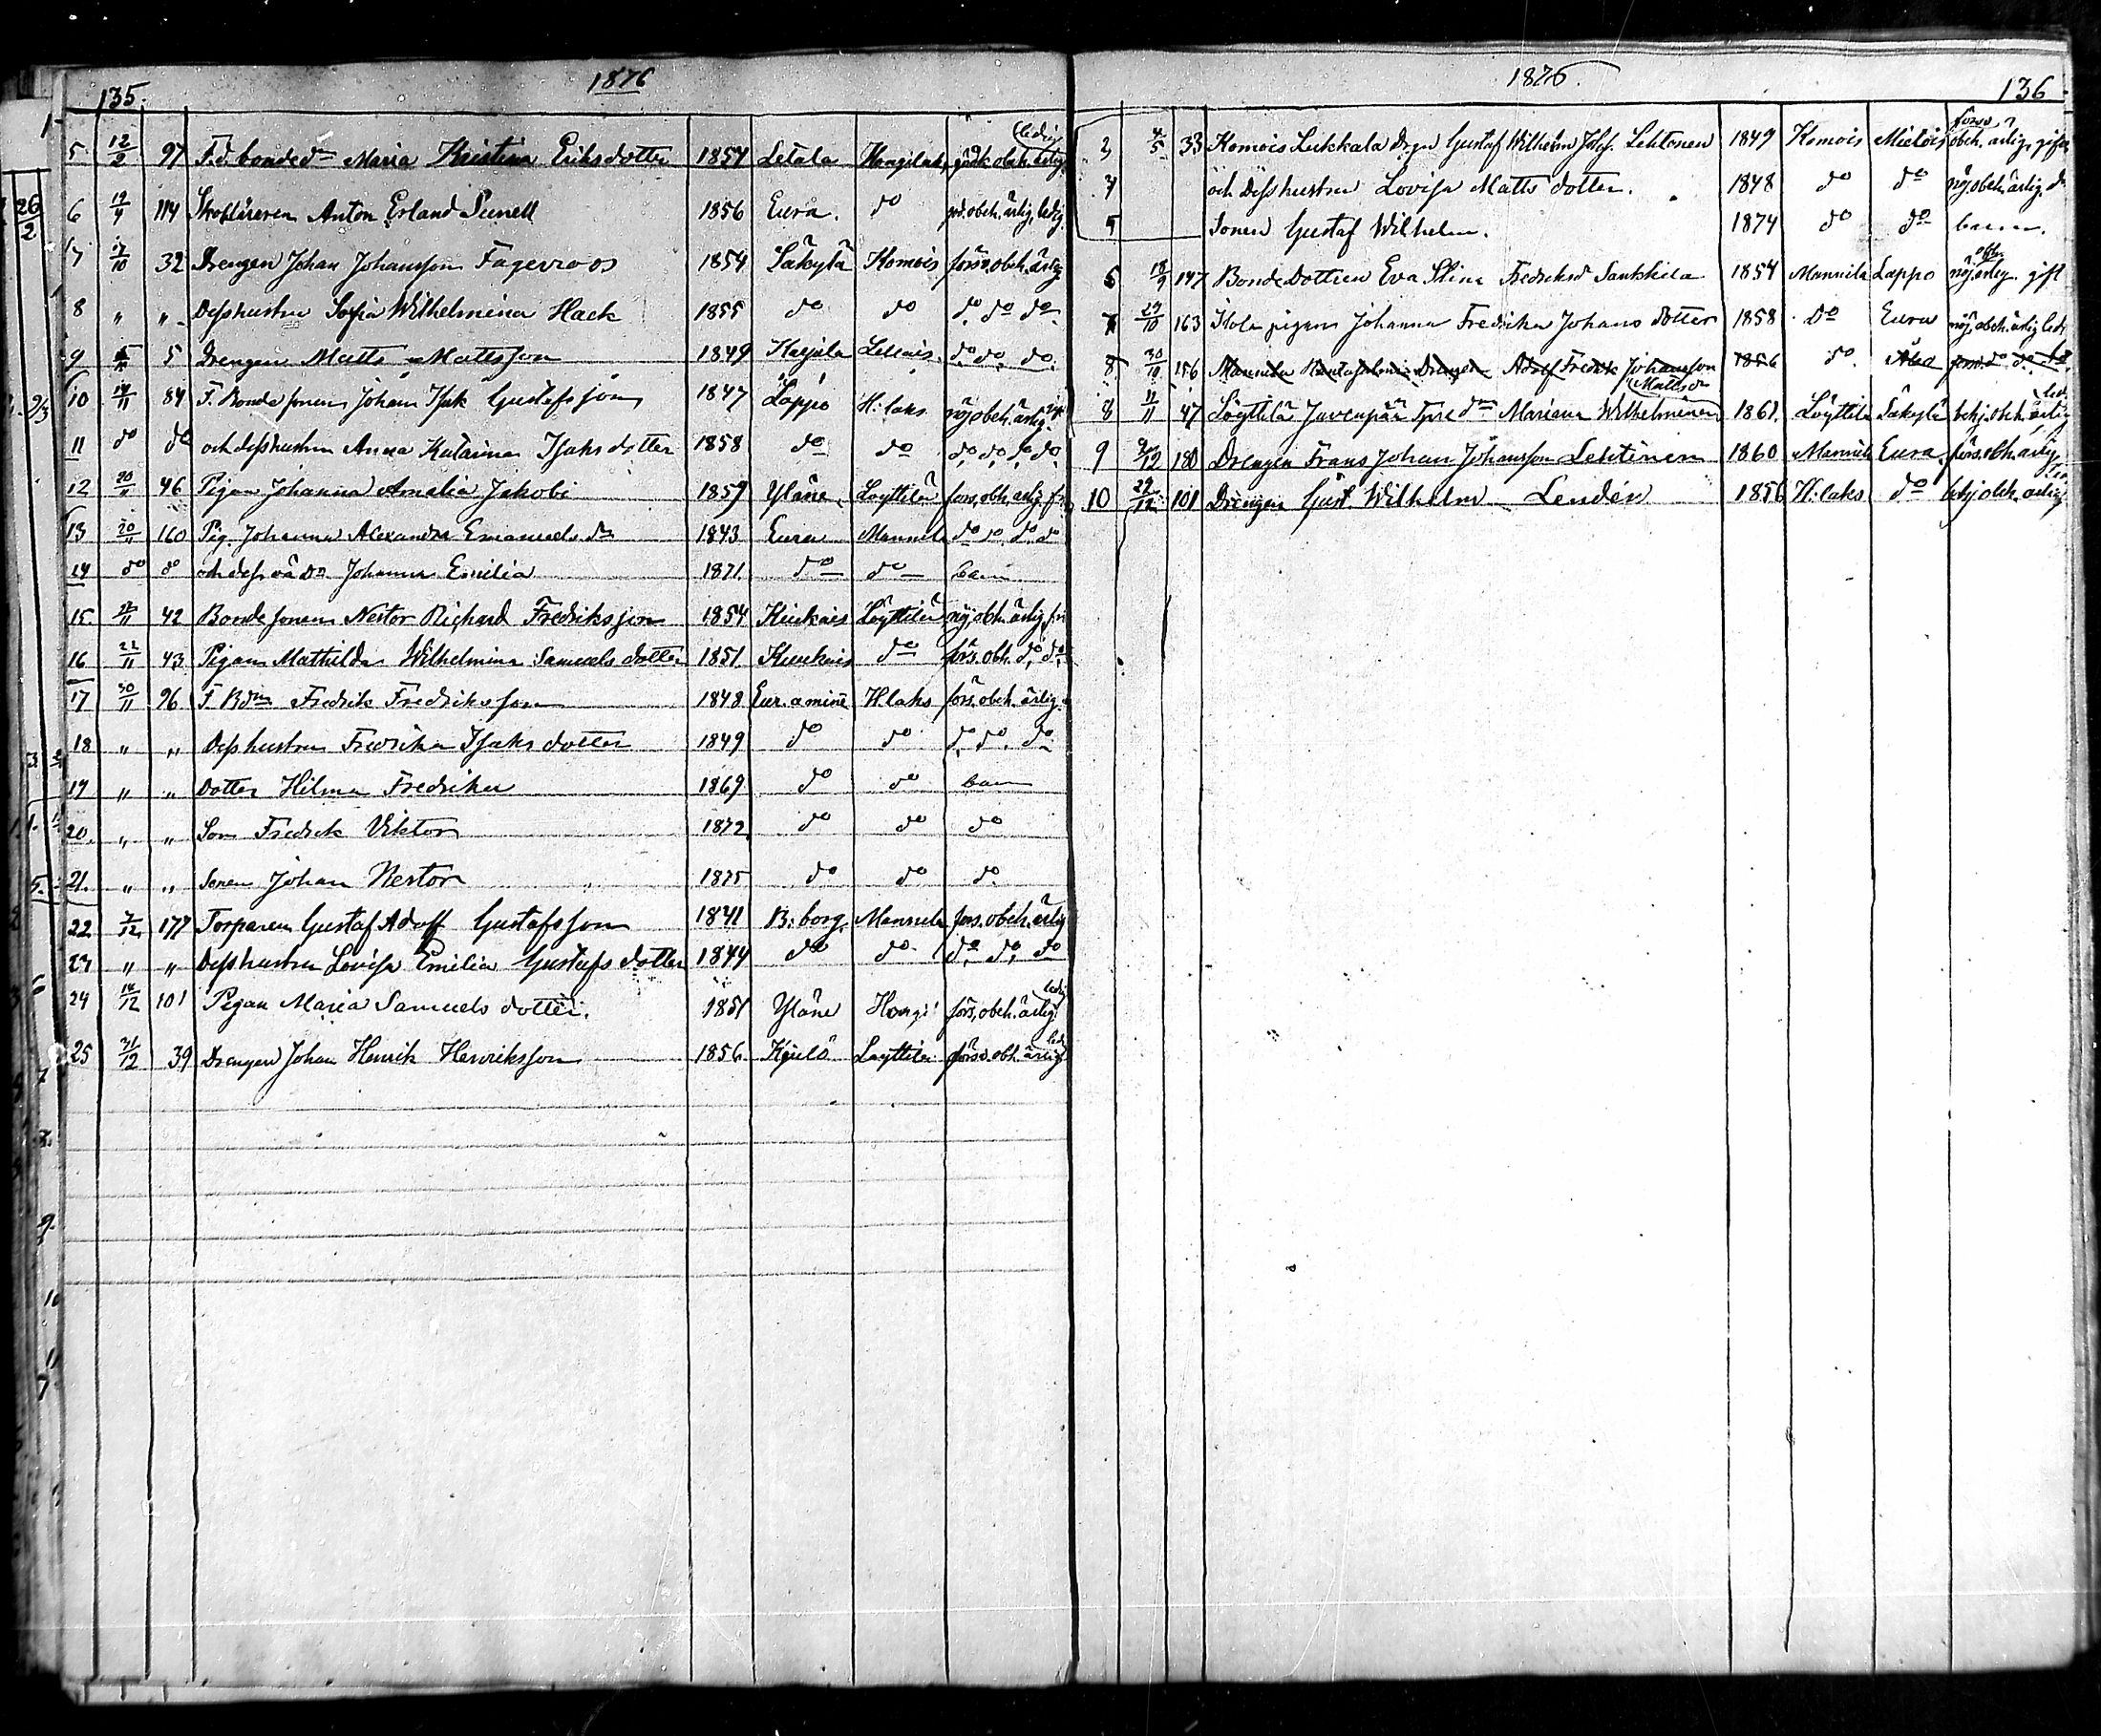 135.
1876
5 12/2 97 F.d. bonde dn Maria Kristina Eriksdotter 1854 Letala Hongilaks, godk. obeh. ärlig ledig
6 19/4 114 Skofläraren Anton Erland Sunell 1856 Eura. do god. obeh. ärlig, ledig
7 17/10 32 Drengen Johan Johansson Fagerroos 1854 Säkylä Komois försv. obeh. ärlig
8 " " Desshustru Sofia Wilhelmina Hack 1855 do do do do do
9 5 Drengen Matts Mattsson 1849 Harjala Lellais do do do
10 14/11 84 F. Bondesonen Johan Isak Gustafsson 1847 Lappo H:laks nöj. obeh. ärlig
11 do do och desshustru Anna Katarina Isaks dotter 1858 do do do do do do
12 20/11 46 Pigan Johanna Amalia Jakobi 1859 Yläne Löyttilä fors. obh. ärlig
13 20/11 160 Pig. Johanna Alexandra Emanuels dr 1843 Eura Mannila do do do do
14 do do och dess oä dr Johanna Emilia 1871 do do barn
15 22/11 42 Bondesonen Nestor Richard Fredriksson 1854 Kiukais Löyttilä nöj. obh. ärlig, fri
16 22/11 43 Pigan Mathilda Wilhelmina Samuels dotter 1851 Kiukais do förs. obh. do do
17 30/11 96 F Bdn Fredrik Fredriksson 1848 Eur. aminne H.laks förs. obeh. ärlig
18 " " Desshustrun Fredrika Isaks dotter 1849 do do do do do
19 " " Dotter Hilma Fredrika 1869 do do barn
20. " " Son Fredrik Viktor 1872 do do do
21. " " Sonen Johan Nestor 1875 do do do
22 7/12 177 Torparen Gustaf Adolf Gustafsson 1841 B:borg. Mannila fors. obeh. ärlig
23 " " Desshustru Lovisa Emilia Gustafs dotter 1844 do do do do do
24 14/12 101 Pigan Maria Samuels dotter. 1851 Yläne Hongi förs, obeh. ärlig ledig
25 31/12 39 Drengen Johan Henrik Henriksson 1856 Kjulo Löyttilä försv. obh. ärlig led
1876.
136
3 4/5 33 Komois Lukkala Drgn Gustaf Wilhelm Josef. Lehtonen 1849 Komois Mietois försv. obeh. ärlig, gift
4 och Desshustru Lovisa Matts dotter. 1848 do do nöj. obeh. ärlig. do
5 Sonen Gustaf Wilhelm. 1874 do do barn.
6 18/9 147 Bonde Dottren Eva Stina Fredriksd Sankkila 1854 Mannila Lappo nöj. obh. ärlig. gift
7 27/10 163 Itola pigan Johanna Fredrika Johans dotter 1858 Do Eura nöj. obeh. ärlig led.
8 30/10 156 Mannila Drengen Adolf Fredrik Johansson 1856 do Åbo försv. do do
8 11/11 47 Löyttilä Juvenpää Tpre dn Mariana Wilhelmina Mattsdr 1861. Löyttilä Säkylä behj. obeh. ärlig led.
9 9/12 180 Drengen Frans Johan Johansson Lehtinen 1860 Mannila Eura förs. obh. ärlig
10 29/12 101 Drengen Gust. Wilhelm Lendén 1856 H:laks do behj obeh. ärlig